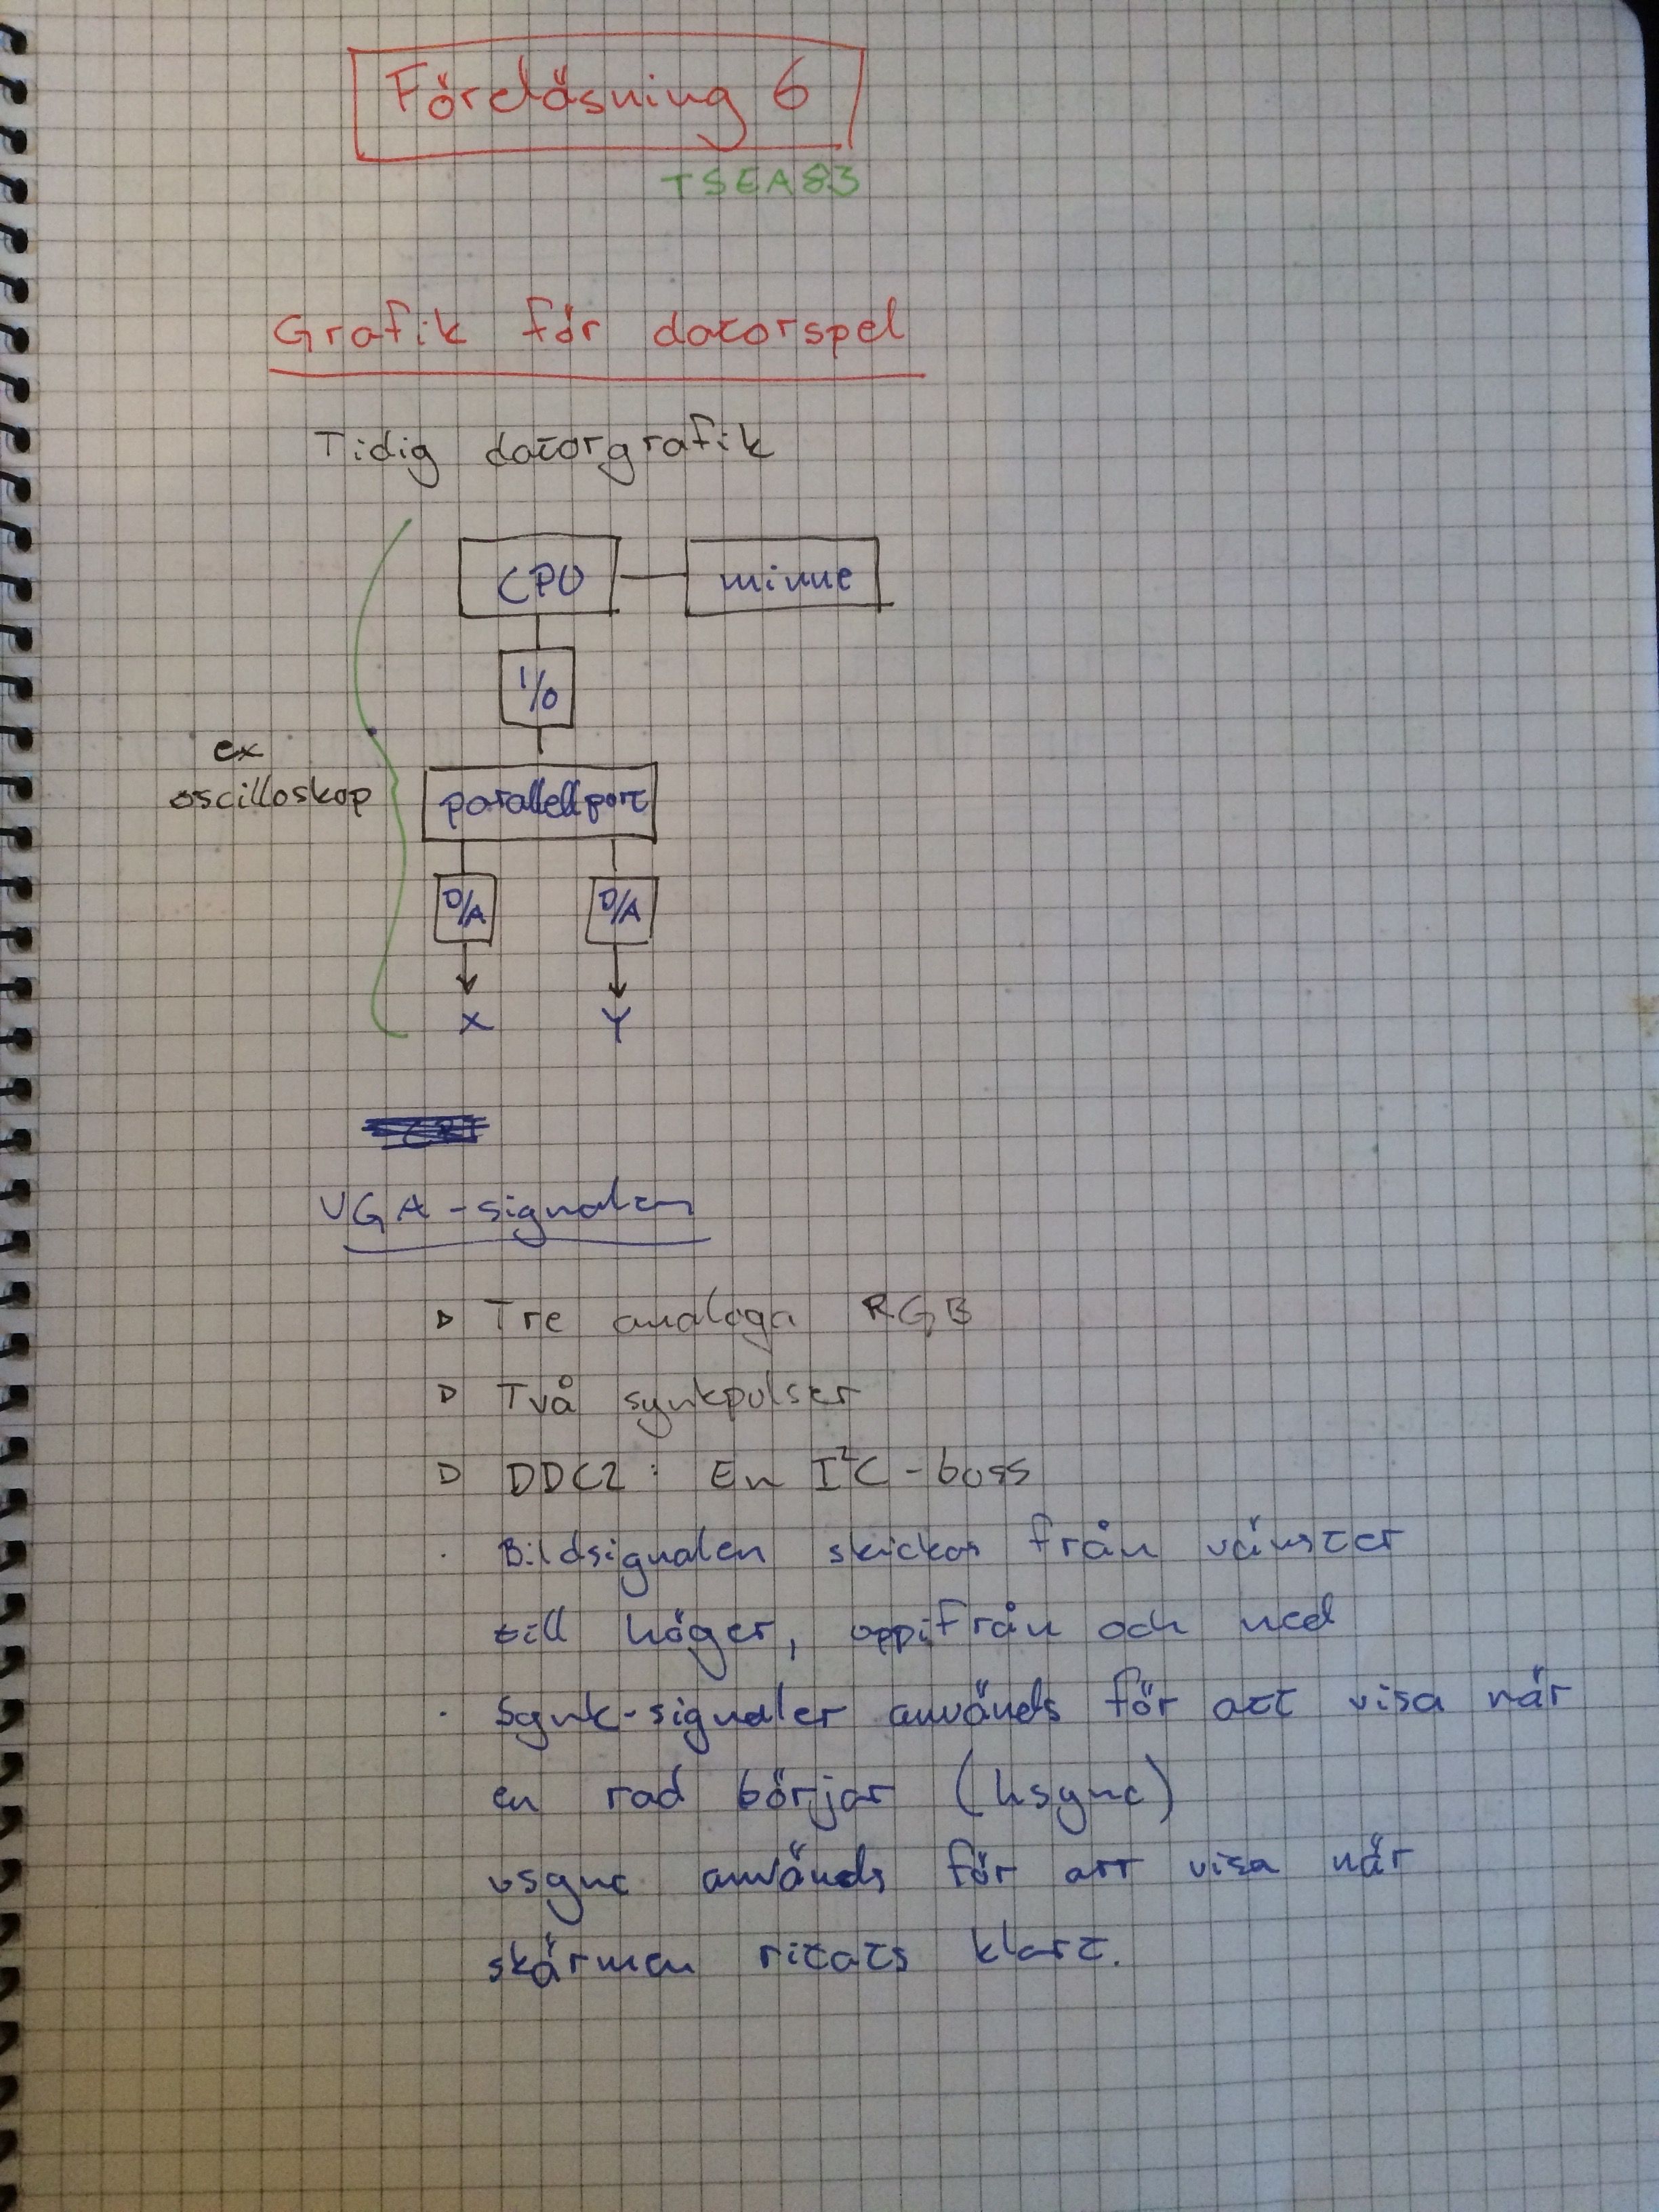 Föreläsning 6
TSEA83
Grafik för datorspel
Tidig datorgrafik
CPU minne
I/O
ex
oscilloskop
parallellport
D/A D/A
X Y
VGA-signalen
▷ Tre analoga RGB
▷ Två synkpulser
▷ DDC2: En I²C-buss
· Bildsignalen skickas från vänster
till höger, uppifrån och ned
· Synk-signaler används för att visa när
en rad börjar (hsync)
vsync används för att visa när
skärmen ritats klart.